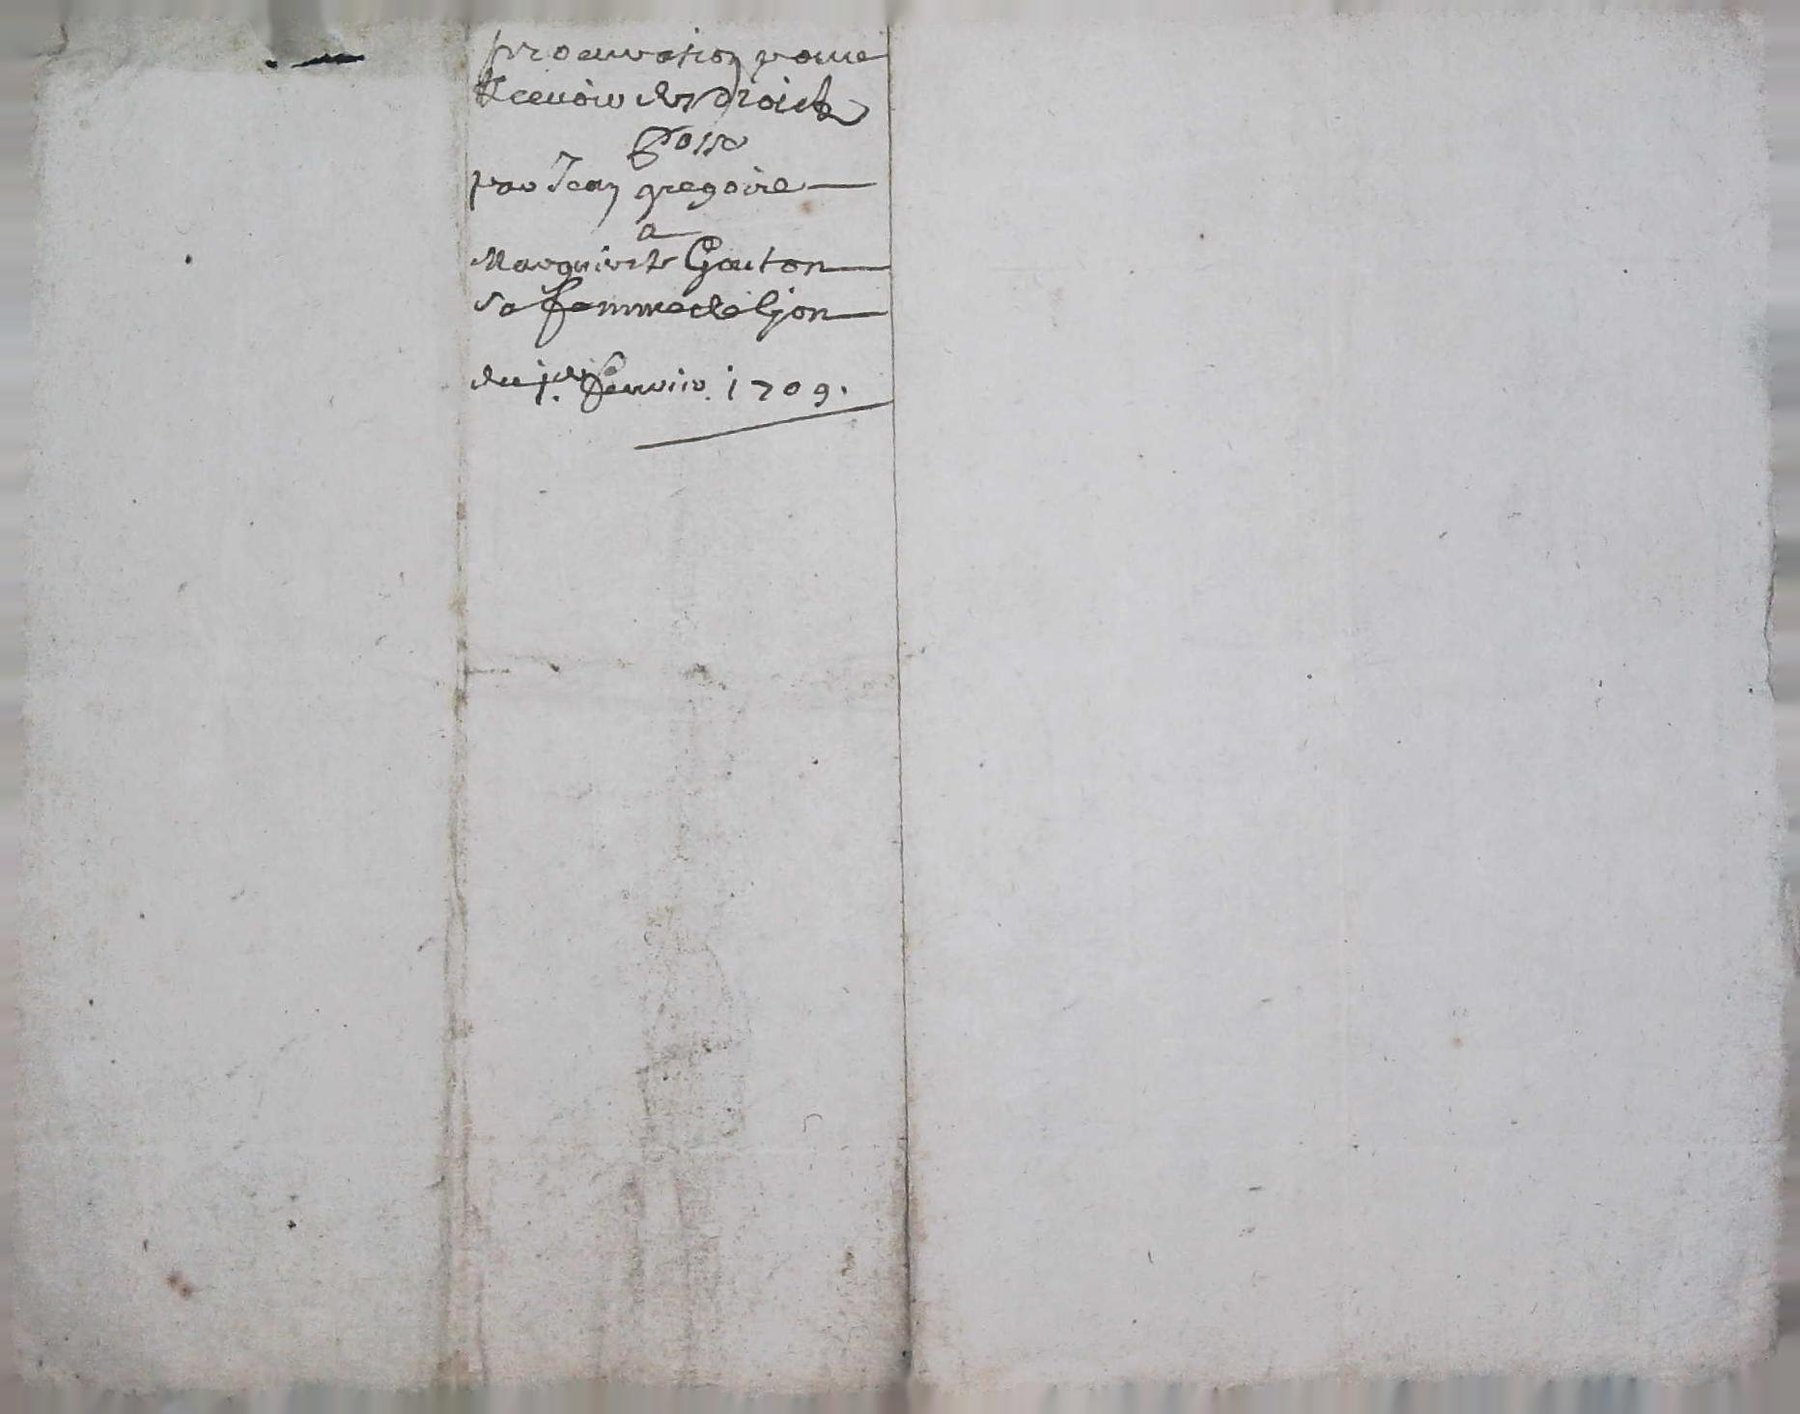 procuration pour
Recevoir des droicts
Passé
par Jean gregoire
a
Marguerite Gauton
sa femme de Lyon
du janvier 1709.